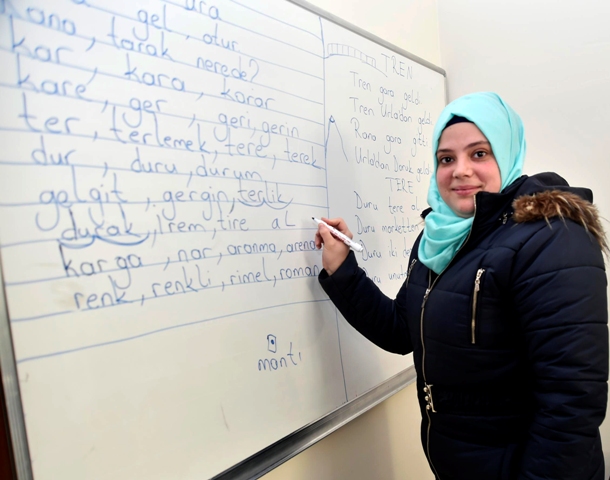 ara
gel, otur
Rana, tarak nerede?
kar, kara, karar
kare, ger, geri, gerin
ter, terlemek, tere, terek
dur, duru, durum
gelgit, gergin, terlik
durak, İrem, tire al
karga, nar, aranma, arena
renk, renkli, rimel, roman
mantı
TREN
Tren gara geldi
Tren Urla'dan geldi
Rana gara gitti
Urla'dan Doruk geldi
TERE
Duru tere al
Duru marketten
Duru iki de
Duru unut